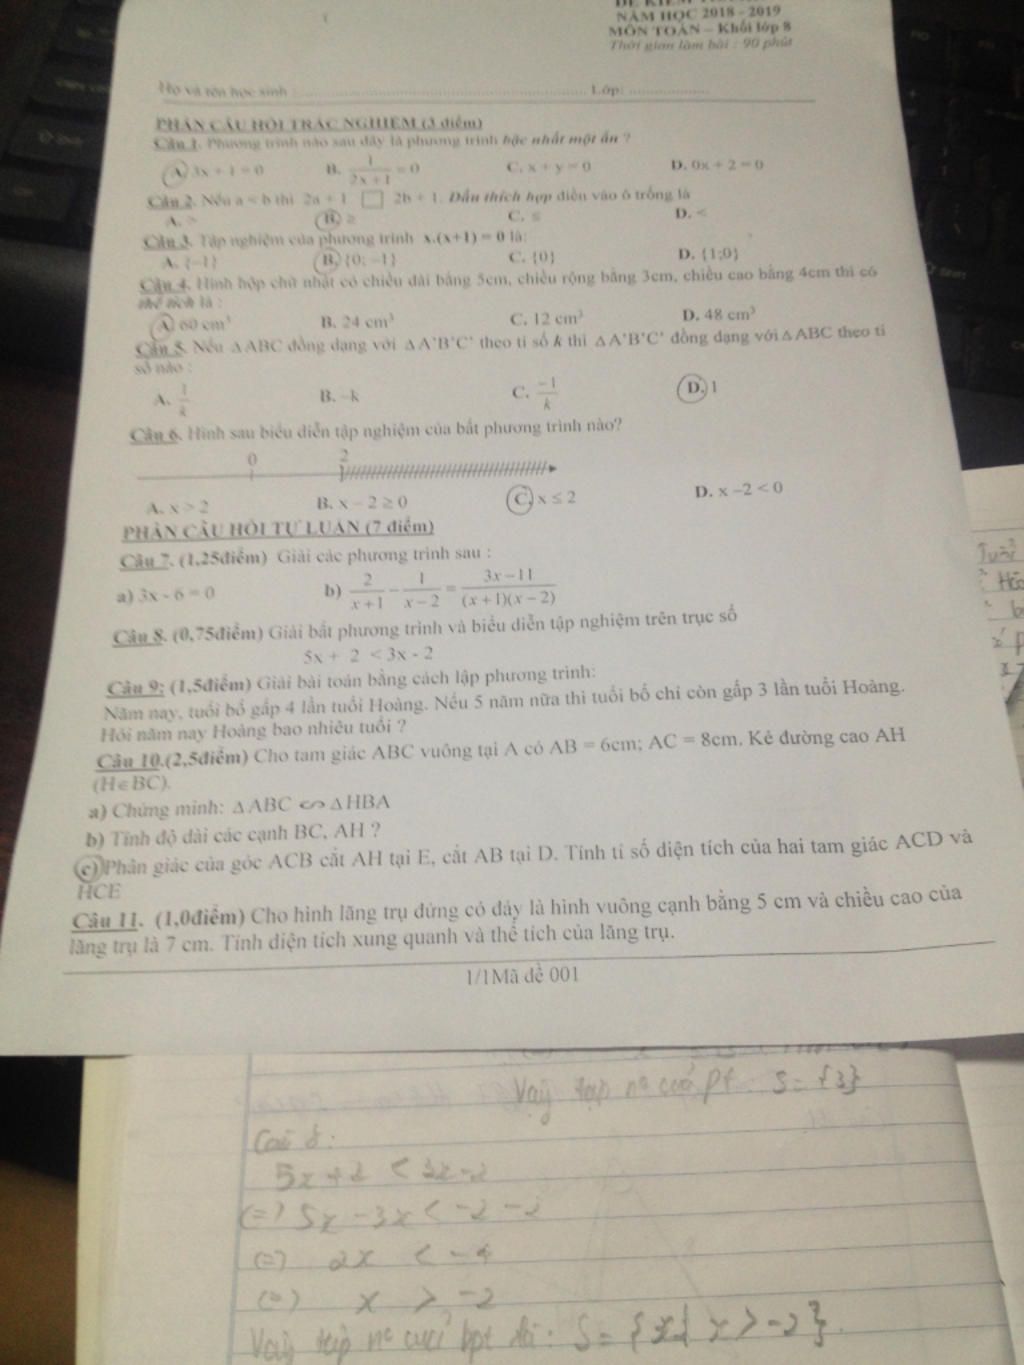 NĂM HỌC 2018 - 2019
MÔN TOÁN – Khối lớp 8
Thời gian làm bài : 90 phút
Họ và tên học sinh : Lớp:
PHẦN CÂU HỎI TRẮC NGHIỆM (3 điểm)
Câu 1. Phương trình nào sau đây là phương trình bậc nhất một ẩn ?
A. 3x + 1 = 0 B. 1/(2x + 1) = 0 C. x + y = 0 D. 0x + 2 = 0
Câu 2. Nếu a < b thì 2a + 1 □ 2b + 1. Dấu thích hợp điền vào ô trống là
A. > B. ≥ C. ≤ D. <
Câu 3. Tập nghiệm của phương trình x.(x+1) = 0 là:
A. {-1} B. {0; -1} C. {0} D. {1;0}
Câu 4. Hình hộp chữ nhật có chiều dài bằng 5cm, chiều rộng bằng 3cm, chiều cao bằng 4cm thì có
thể tích là :
A. 60 cm³ B. 24 cm³ C. 12 cm³ D. 48 cm³
Câu 5. Nếu ΔABC đồng dạng với ΔA'B'C' theo tỉ số k thì ΔA'B'C' đồng dạng với ΔABC theo tỉ
số nào :
A. 1/k B. –k C. -1/k D. 1
Câu 6. Hình sau biểu diễn tập nghiệm của bất phương trình nào?
0 2
A. x > 2 B. x – 2 ≥ 0 C. x ≤ 2 D. x –2 < 0
PHẦN CÂU HỎI TỰ LUẬN (7 điểm)
Câu 7. (1,25điểm) Giải các phương trình sau :
a) 3x - 6 = 0 b) 2/(x+1) − 1/(x−2) = (3x−11)/((x+1)(x−2))
Câu 8. (0,75điểm) Giải bất phương trình và biểu diễn tập nghiệm trên trục số
5x + 2 < 3x - 2
Câu 9: (1,5điểm) Giải bài toán bằng cách lập phương trình:
Năm nay, tuổi bố gấp 4 lần tuổi Hoàng. Nếu 5 năm nữa thì tuổi bố chỉ còn gấp 3 lần tuổi Hoàng.
Hỏi năm nay Hoàng bao nhiêu tuổi ?
Câu 10.(2,5điểm) Cho tam giác ABC vuông tại A có AB = 6cm; AC = 8cm. Kẻ đường cao AH
(H∈BC).
a) Chứng minh: ΔABC ∽ ΔHBA
b) Tính độ dài các cạnh BC, AH ?
c) Phân giác của góc ACB cắt AH tại E, cắt AB tại D. Tính tỉ số diện tích của hai tam giác ACD và
HCE
Câu 11. (1,0điểm) Cho hình lăng trụ đứng có đáy là hình vuông cạnh bằng 5 cm và chiều cao của
lăng trụ là 7 cm. Tính diện tích xung quanh và thể tích của lăng trụ.
1/1Mã đề 001
Vậy tập n⁰ của pt : S = {3}
Câu 8:
5x + 2 < 3x - 2
(=) 5x - 3x < -2 - 2
(=) 2x < -4
(=) x > -2
Vậy tập n⁰ của bpt là : S = {x | x > -2}